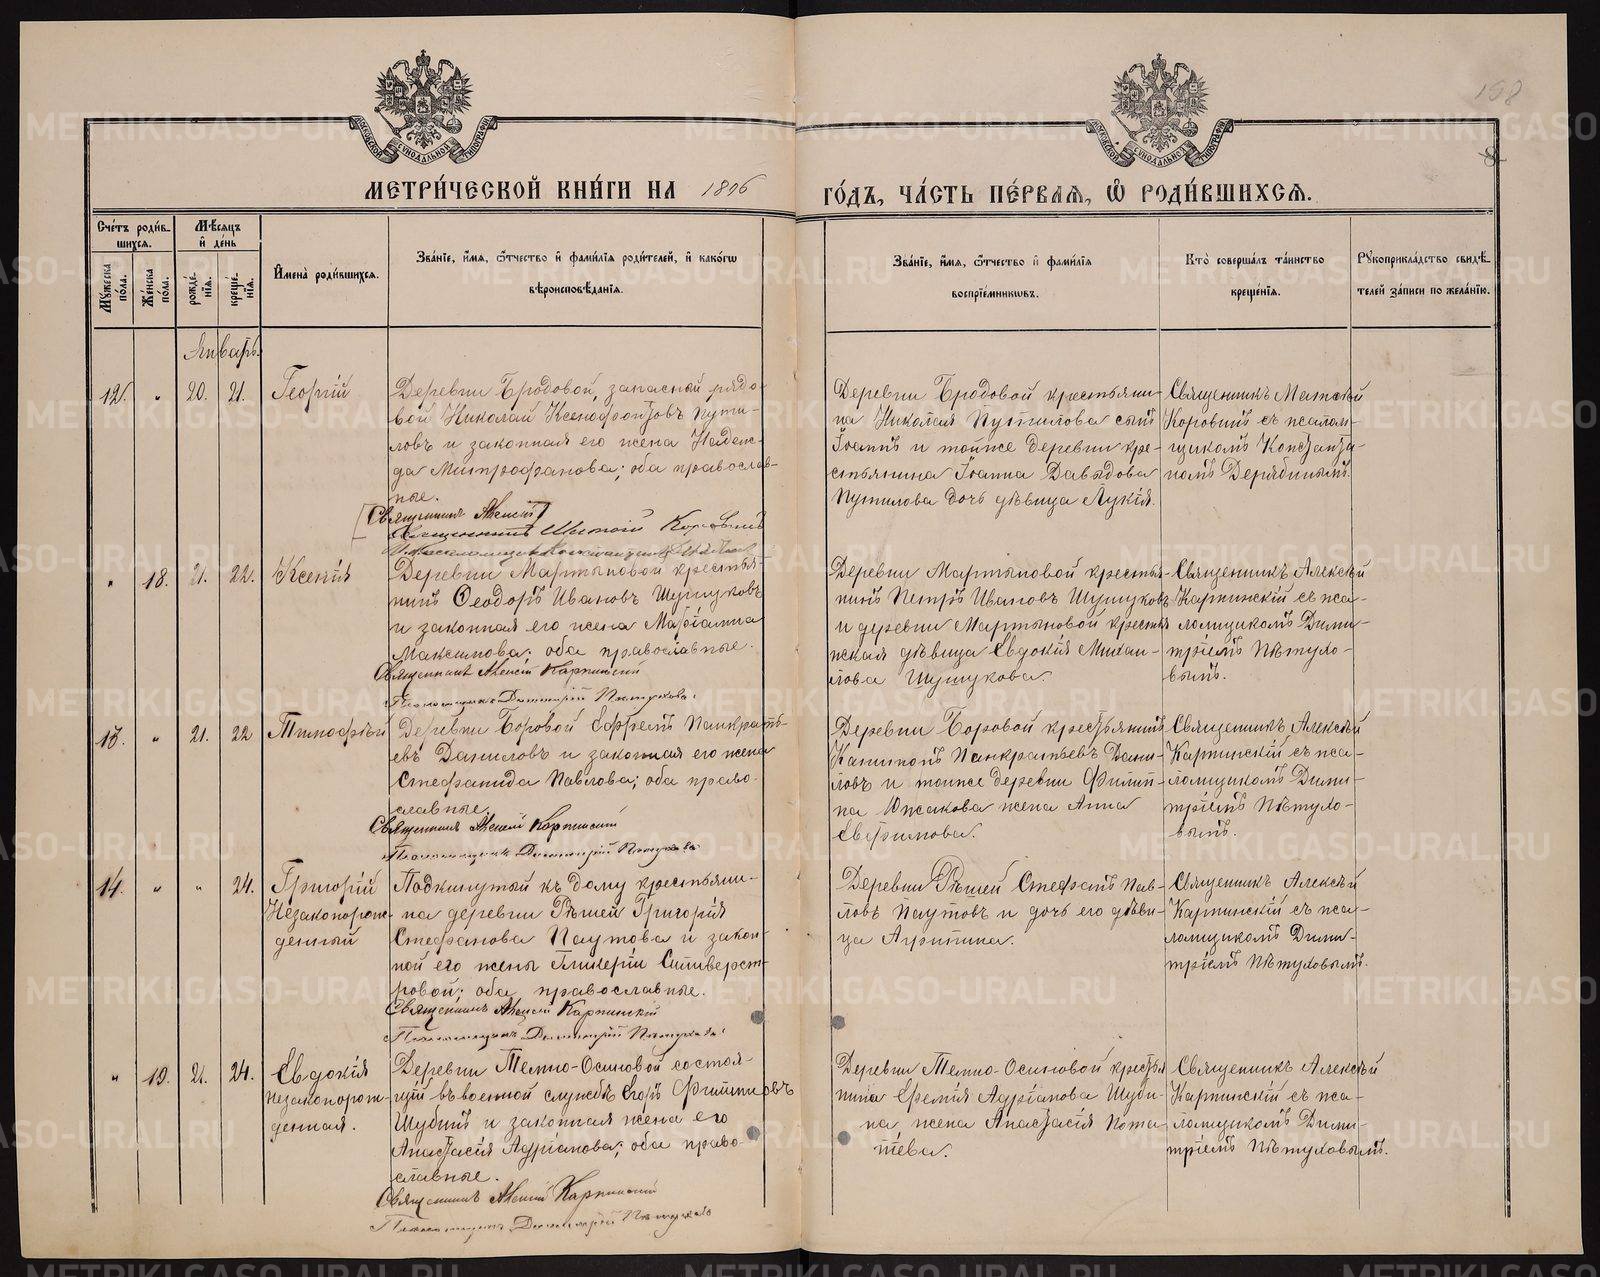 158
МЕТРИ́ЧЕСКОЙ КНИ́ГИ НА 1896 ГО́ДЪ, ЧА́СТЬ ПЕ́РВАЯ, Ѽ РОДИ́ВШИХСЯ.
Сче́тъ роди́в-
шихся.
Мѣ́сяцъ
и́ де́нь
Му́жеска по́ла.
Же́нска по́ла.
рожде́-
нїя.
креще́-
нїя.
И҆мена̀ роди́вшихся.
Зва́нїе, и҆́мя, ѻ҆́тчество и҆ фами́лїя роди́телей, и҆ како́гѡ
вѣроисповѣ́данїя.
Зва́нїе, и҆́мя, ѻ҆́тчество и҆ фами́лїя
воспрїе́мникѡвъ.
Кто̀ соверша́лъ та́инство
креще́нїя.
Рꙋкоприкла́дство свидѣ́-
телей за́писи по жела́нїю.
Январь.
12. " 20. 21. Георгій
Деревни Бродовой, запасной рядо-
вой Николай Ксенофонтовъ Пути-
ловъ и законная его жена Надеж-
да Митрофанова; оба православ-
ные.
Священникъ Алексій
Деревни Бродовой крестьяни-
на Николая Путилова сынъ
Іоаннъ и тойже деревни кре-
стьянина Іоанна Давидова
Путилова дочь дѣвица Лукія.
Священникъ
Коровинъ съ псалом-
щикомъ Константи-
номъ Дерябинымъ.
" 18. 21. 22. Ксенія
Деревни Мартыновой крестья-
нинъ Ѳеодоръ Ивановъ Шушуковъ
и законная его жена Маріамна
Максимова; оба православные.
Священникъ Алексій Карпинскій
Псаломщикъ Димитрій Пѣтуховъ.
Деревни Мартыновой крестья-
нинъ Петръ Ивановъ Шушуковъ
и деревни Мартыновой крестья
нская дѣвица Евдокія Михаи-
лова Шушукова.
Священникъ Алексѣй
Карпинскій съ пса-
ломщикомъ Дими-
тріемъ Пѣтухо-
вымъ.
13. " 21. 22 Тимофѣй
Деревни Боровой Ефремъ Панкрать-
евъ Даниловъ и законная его жена
Стефанида Павлова; оба право-
славные.
Священникъ Алексій Карпинскій
Псаломщикъ Димитрій Пѣтуховъ
Деревни Боровой крестьянинъ
Капитонъ Панкратьевъ Дани-
ловъ и тойже деревни Филип-
па Южакова жена Анна
Евфимова.
Священникъ Алексѣй
Карпинскій съ пса-
ломщикомъ Дими-
тріемъ Пѣтухо-
вымъ.
14. " " 24. Григорій
Незаконорож-
денный
Подкинутый къ дому крестьяни-
на деревни Рѣшей Григорія
Стефанова Паутова и закон-
ной его жены Гликеріи Силиверст-
ровой; оба православные.
Священникъ Алексій Карпинскій
Псаломщикъ Димитрій Пѣтуховъ.
Деревни Рѣшей Стефанъ Пав-
ловъ Паутовъ и дочь его дѣви-
ца Агрипина.
Священникъ Алексѣй
Карпинскій съ пса-
ломщикомъ Дими-
тріемъ Пѣтуховымъ.
" 19. 21. 24. Евдокія
незаконорож-
денная.
Деревни Темно-Осиновой состоя-
щій въ военной службѣ Егоръ Филипповъ
Шубинъ и законная жена его
Анастасія Адріанова; оба право-
славные.
Священникъ Алексій Карпинскій
Псаломщикъ Димитрій Пѣтуховъ
Деревни Темно-Осиновой крестья
нина Еремія Адріанова Шуби-
на жена Анастасія Пота-
пьева.
Священникъ Алексѣй
Карпинскій съ пса-
ломщикомъ Дими-
тріемъ Пѣтуховымъ.
METRIKI.GASO-URAL.RU